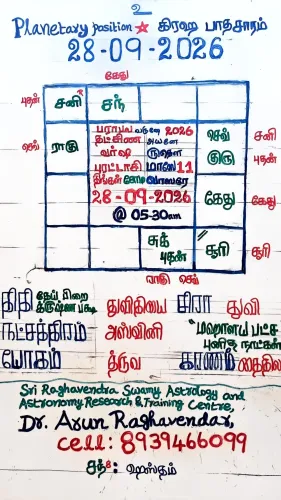 உ
Planetary position ☆ கிரஹ பாதசாரம்
28-09-2026
கேது
புதன் சனி சந்
செவ் ராகு செவ் குரு சனி புதன்
பராபவ வருடம் 2026
தட்சிண அயனம்
வர்ஷ ருதௌ
புரட்டாசி மாஸே 11
திங்கள் சோம வாஸரே
28-09-2026
@ 05-30am
கேது கேது
சுக் புதன் சூரி சூரி
ராகு செவ்
திதி தேய் பிறை க்ருஷ்ண பக்ஷ துவிதியை சிரா துவி
நட்சத்திரம் அஸ்வினி "மஹாளய பட்ச புனித நாட்கள்"
யோகம் த்ருவ கரணம் தைதுல
Sri Raghavendra Swamy Astrology and
Astronomy Research & Training Centre,
Dr. Arun Raghavendar,
cell: 8939466099
சந்8: ஹஸ்தம்